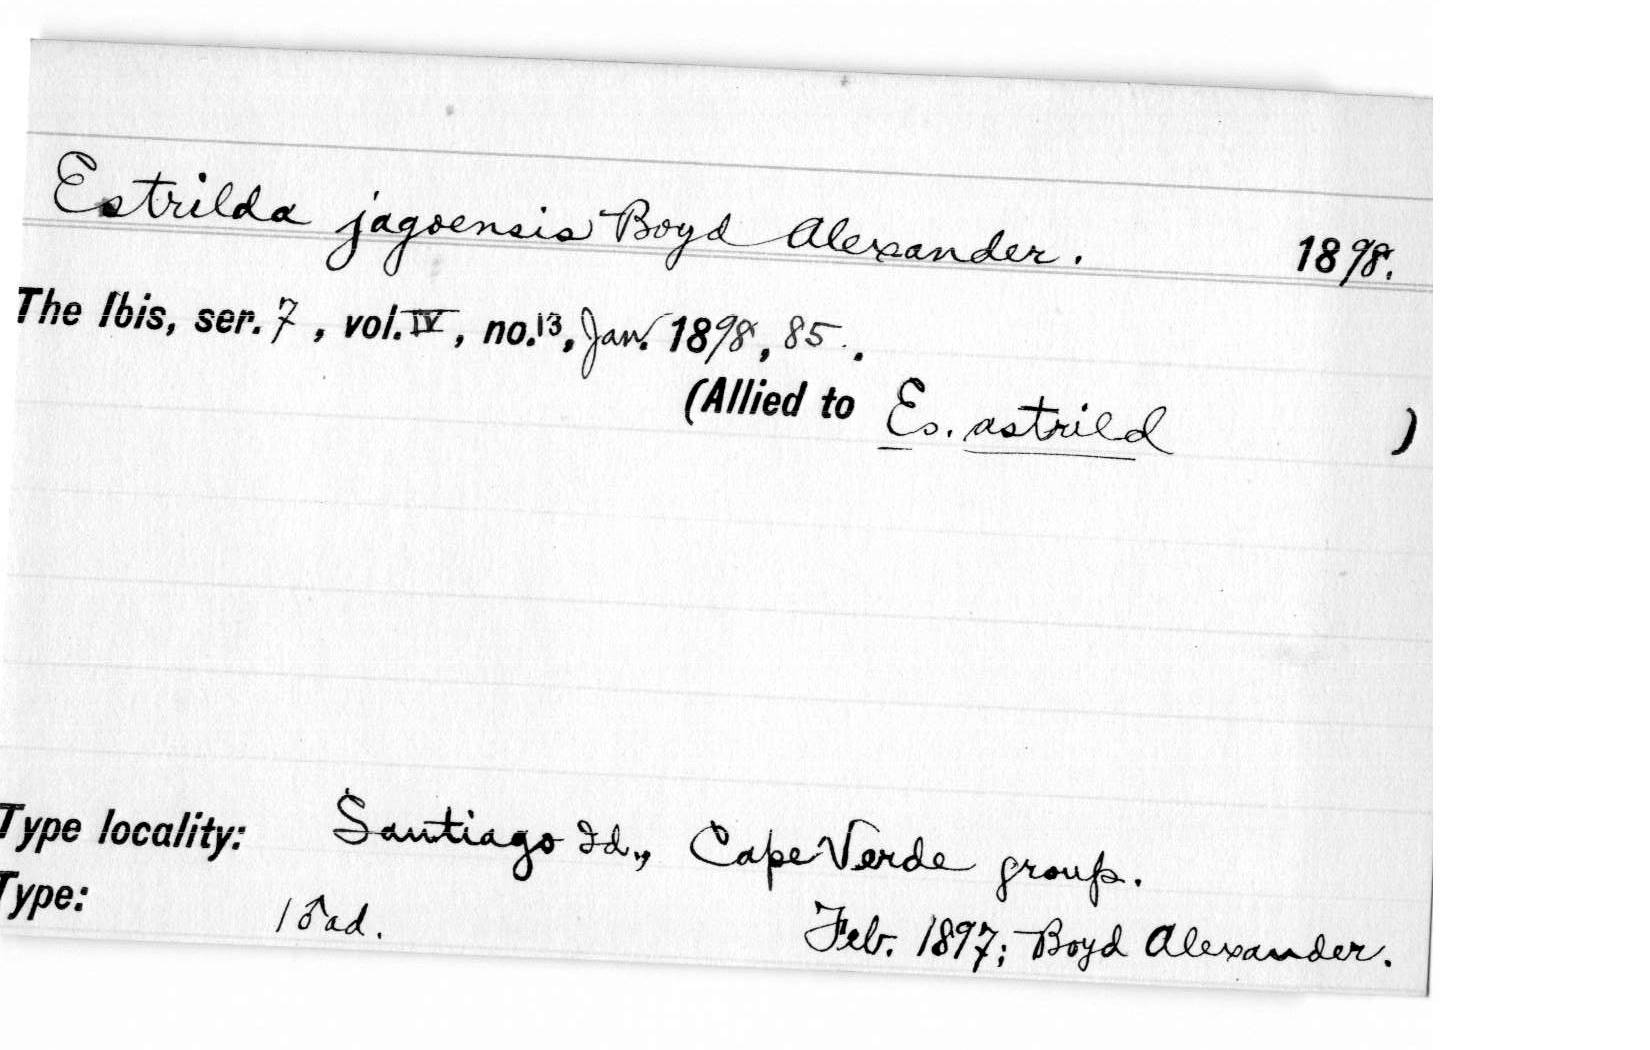 Estrilda jagoensis Boyd Alexander. 1898.
The Ibis, ser. 7, vol. IV, no. 13, Jan. 1898, 85.
(Allied to Es. astrild )
Type locality: Santiago Id., Cape Verde group.
Type: 1 ♂ ad. Feb. 1897; Boyd Alexander.